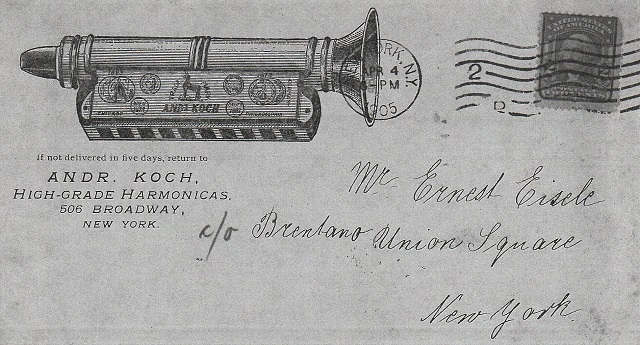 ANDR. KOCH
YORK, N.Y.
APR 4
PM
1905
2
D
If not delivered in five days, return to
ANDR. KOCH,
HIGH-GRADE HARMONICAS,
506 BROADWAY,
NEW YORK.
Mr. Ernest Eisele
c/o Brentano Union Square
New York.